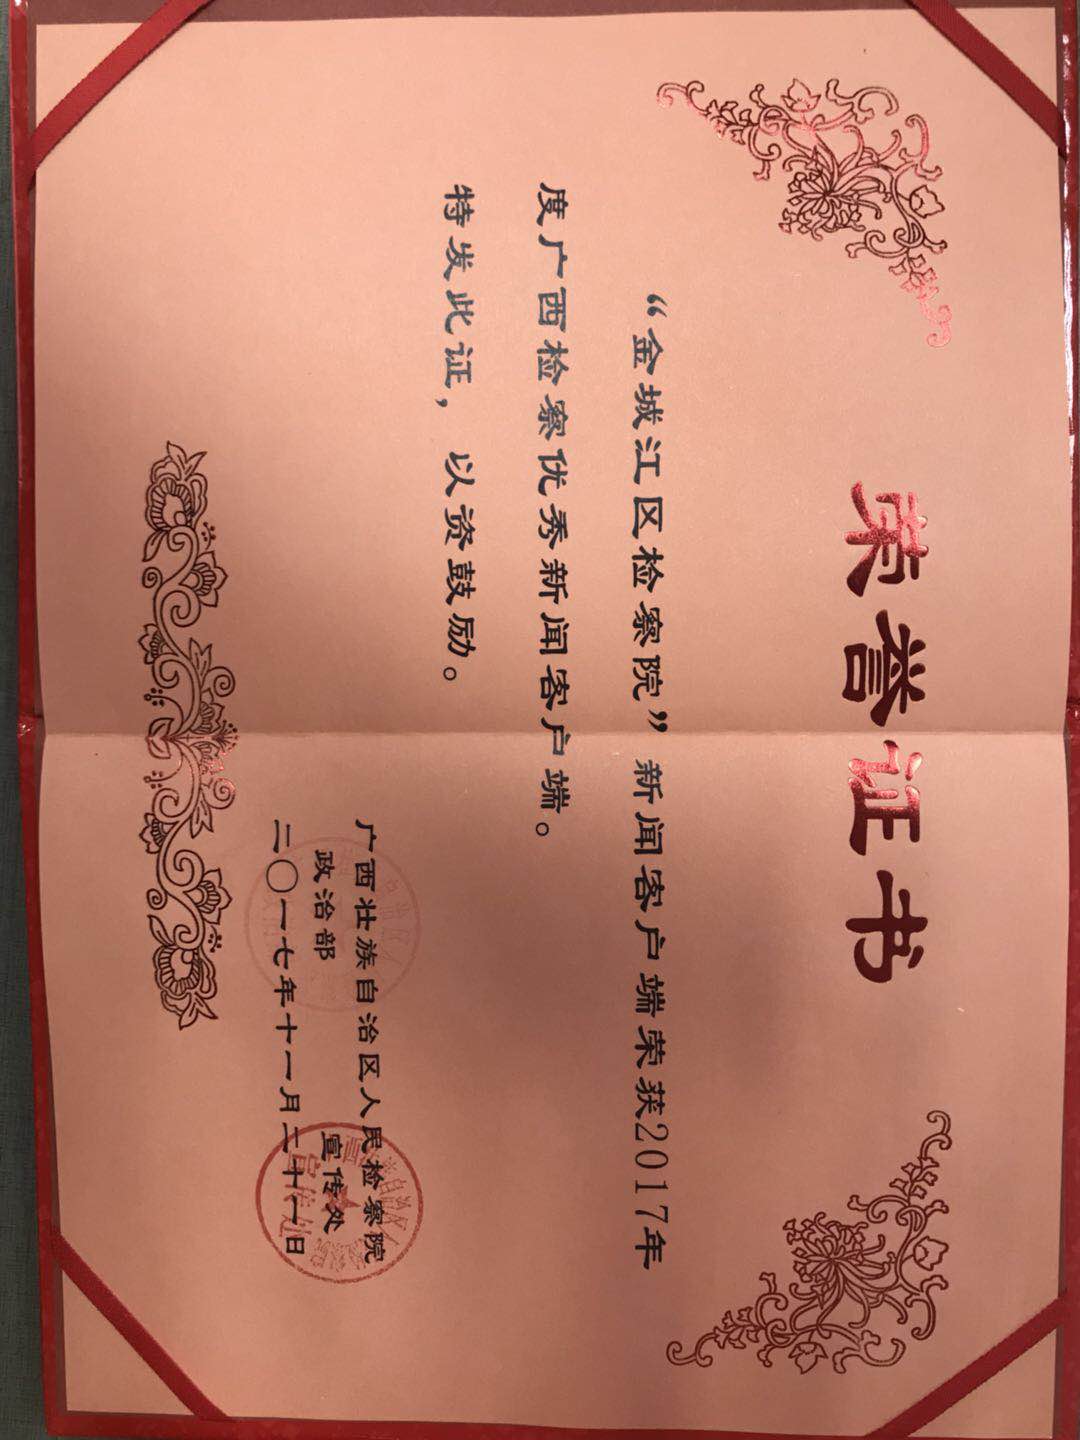 荣誉证书
“金城江区检察院”新闻客户端荣获2017年
度广西检察优秀新闻客户端。
特发此证，以资鼓励。
广西壮族自治区人民检察院
政治部 宣传处
二〇一七年十一月二十一日
宣传处